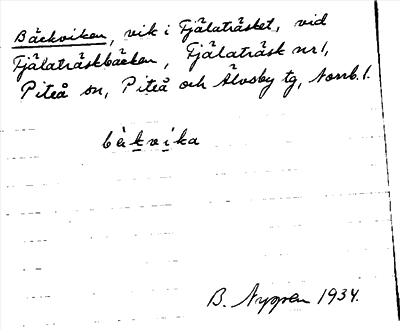 Bäckviken, vik i Fjälaträsket, vid
Fjälaträskbäcken, Fjälaträsk nr 1,
Piteå sn, Piteå och Älvsby tg, Norrb. l.
bèkvika
B. Nygren 1934.